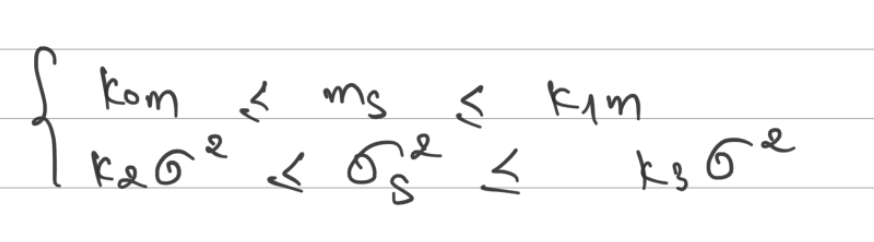 { k₀m ≤ m_S ≤ k₁m
k₂σ² ≤ σ_S² ≤ k₃σ²